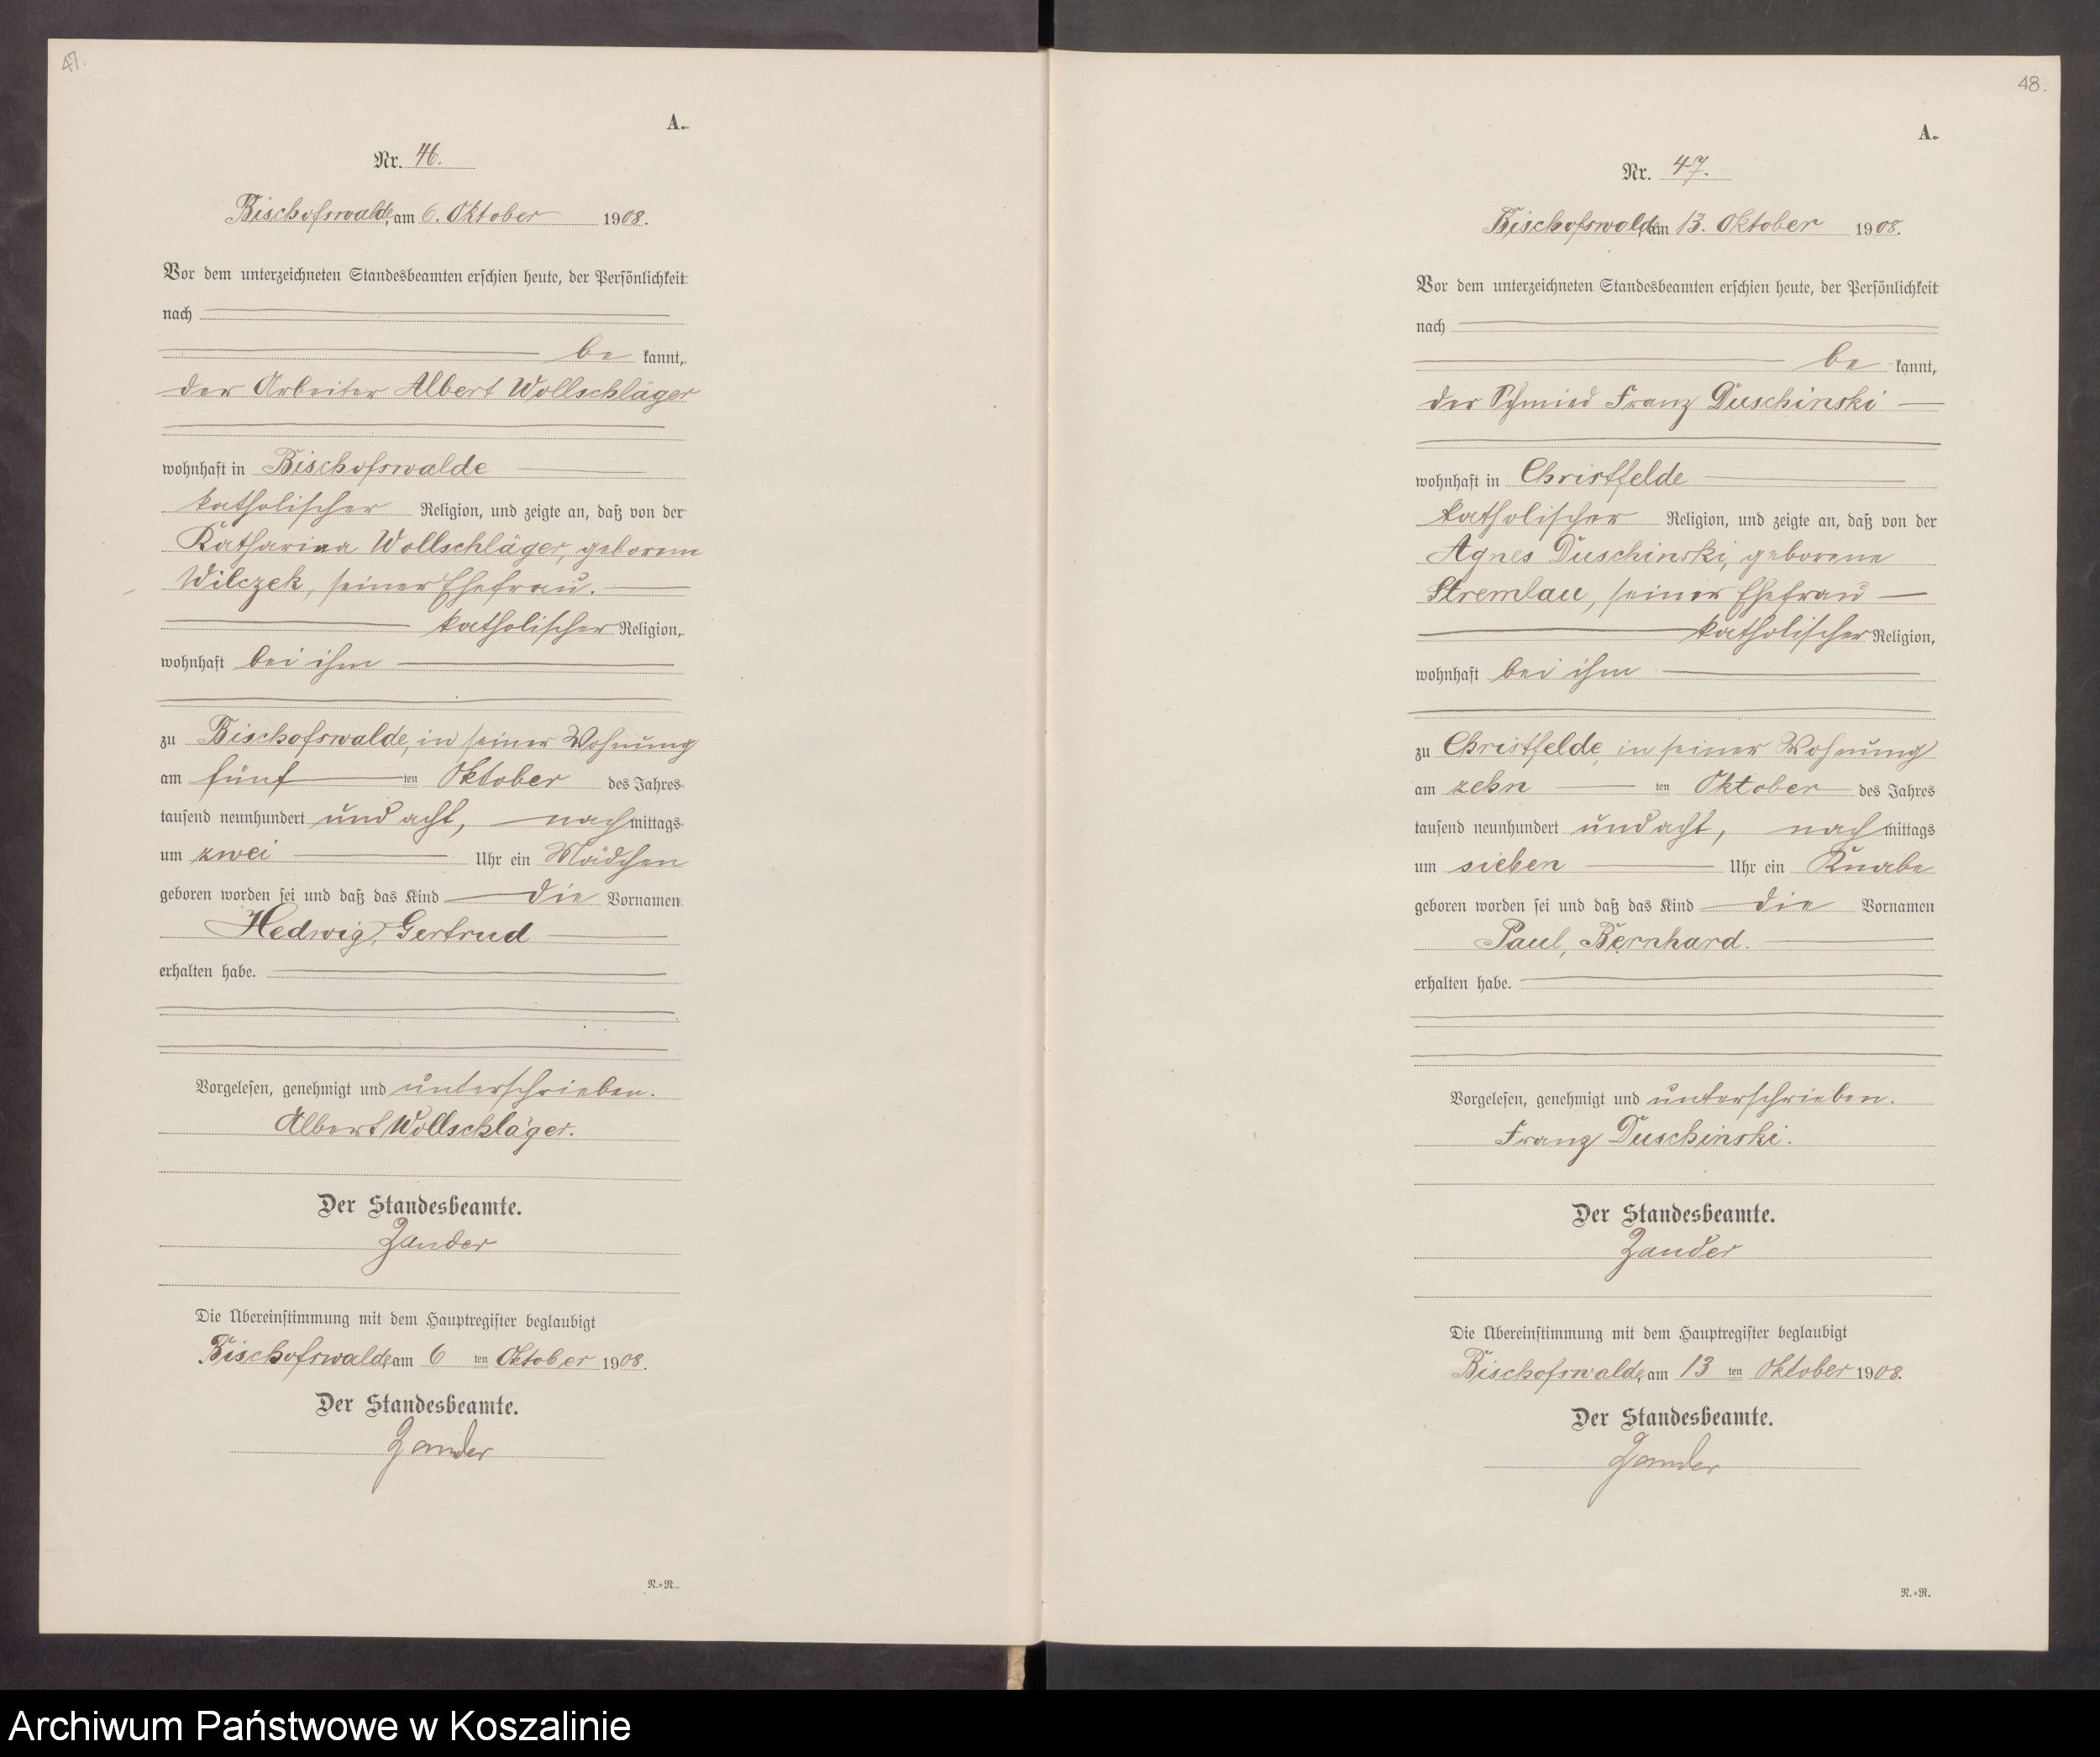 47.
A.
Nr. 46.
Bischofswalde, am 6. Oktober 1908.
Vor dem unterzeichneten Standesbeamten erschien heute, der Persönlichkeit
nach
be kannt,
der Arbeiter Albert Wollschläger
wohnhaft in Bischofswalde
katholischer Religion, und zeigte an, daß von der
Katharina Wollschläger, geborene
Wilczek, seiner Ehefrau.
katholischer Religion,
wohnhaft bei ihm
zu Bischofswalde, in seiner Wohnung
am fünf ten Oktober des Jahres
tausend neunhundert und acht, nachmittags
um zwei Uhr ein Mädchen
geboren worden sei und daß das Kind die Vornamen
Hedwig, Gertrud
erhalten habe.
Vorgelesen, genehmigt und unterschrieben.
Albert Wollschläger.
Der Standesbeamte.
Zander
Die Übereinstimmung mit dem Hauptregister beglaubigt
Bischofswalde, am 6 ten Oktober 1908.
Der Standesbeamte.
Zander
N.=R.
48.
A.
Nr. 47.
Bischofswalde, am 13. Oktober 1908.
Vor dem unterzeichneten Standesbeamten erschien heute, der Persönlichkeit
nach
be kannt,
der Schmied Franz Duschinski
wohnhaft in Christfelde
katholischer Religion, und zeigte an, daß von der
Agnes Duschinski, geborene
Stremlau, seiner Ehefrau
katholischer Religion,
wohnhaft bei ihm
zu Christfelde, in seiner Wohnung
am zehn ten Oktober des Jahres
tausend neunhundert und acht, nachmittags
um sieben Uhr ein Knabe
geboren worden sei und daß das Kind die Vornamen
Paul, Bernhard.
erhalten habe.
Vorgelesen, genehmigt und unterschrieben.
Franz Duschinski.
Der Standesbeamte.
Zander
Die Übereinstimmung mit dem Hauptregister beglaubigt
Bischofswalde, am 13 ten Oktober 1908.
Der Standesbeamte.
Zander
N.=R.
Archiwum Państwowe w Koszalinie